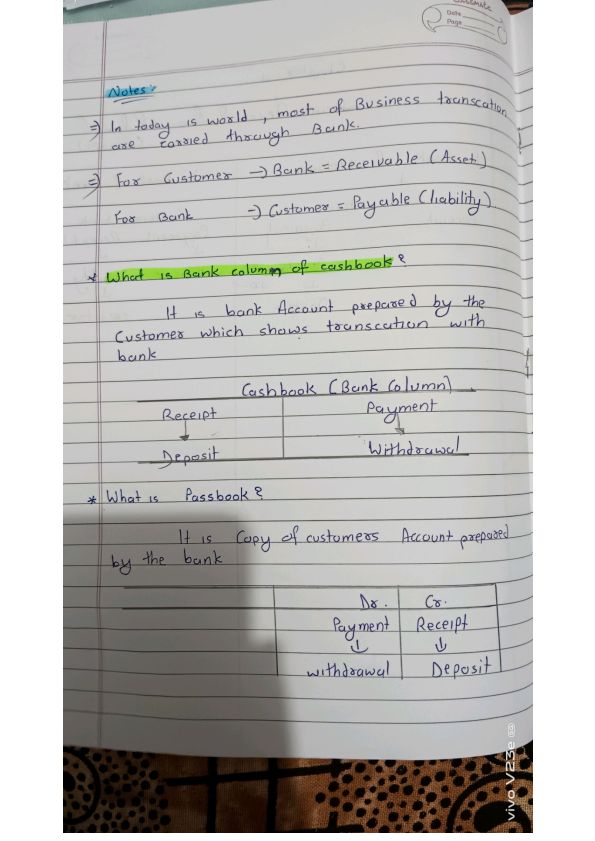 classmate
Date
Page
Notes :
=) In today is world , most of Business transcation
are carried through Bank.
=) For Customer → Bank = Receivable (Asset)
For Bank → Customer = Payable (liability)
* What is Bank column of cashbook ?
It is bank Account prepared by the
Customer which shows transcation with
bank
Cashbook (Bank Column)
Receipt Payment
↓ ↓
Deposit Withdrawal
* What is Passbook ?
It is Copy of customers Account prepared
by the bank
Dr. Cr.
Payment Receipt
↓ ↓
withdrawal Deposit
vivo V23e 5G